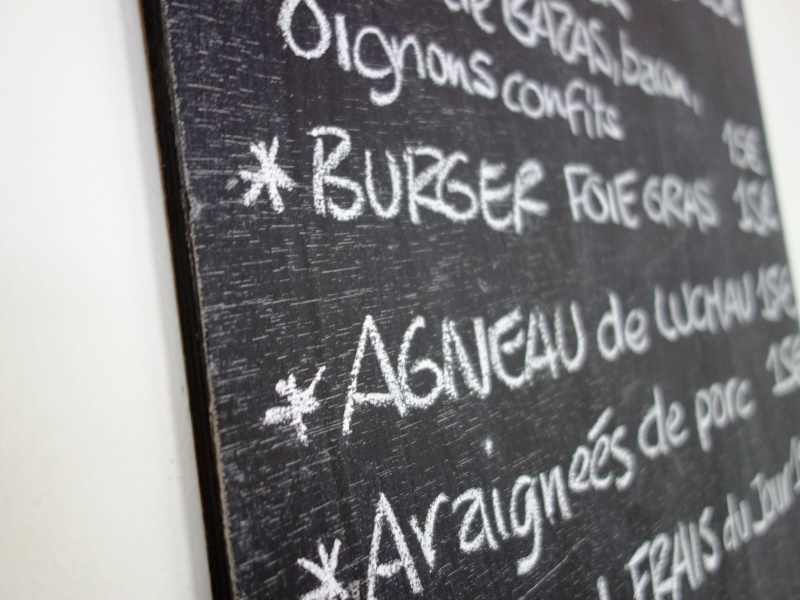 de BAZAS, bacon,
Oignons confits
15€
* BURGER FOIE GRAS 15€
* AGNEAU de LUCHAU 15€
* Araigneés de porc 15€
* FRAIS du Jour